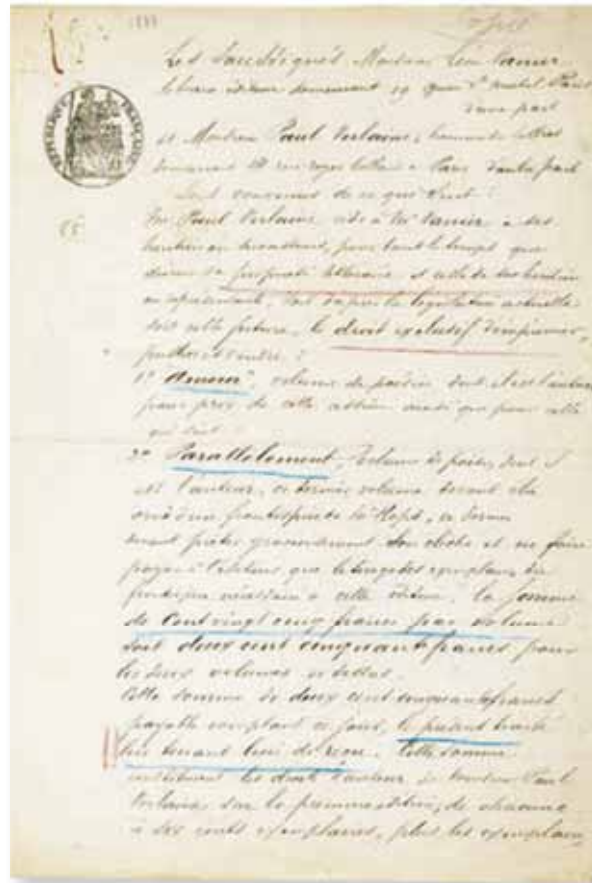 Copie
Les Soussignés Monsieur Léon Vanier
libraire éditeur demeurant 19 quai St Michel Paris
d'une part
et Monsieur Paul Verlaine, homme de lettres
demeurant rue Royer Collard à Paris d'autre part
sont convenus de ce qui suit :
Mr Paul Verlaine cède à Mr Vanier à ses
héritiers ou successeurs, pour tout le temps que
durera sa propriété littéraire et celle de ses héritiers
ou représentants, soit d'après la législation actuelle
soit celle future, le droit exclusif d'imprimer,
publier et vendre :
1° "Amour", volume de poésies dont il est l'auteur
pour prix de cette cession ainsi que pour celle
qui suit
2° Parallèlement, volume de poésies dont il
est l'auteur, ce dernier volume devant être
orné d'un frontispice de Rops, ce dernier
devant prêter gracieusement son cliché et ne faire
payer à l'éditeur que le tirage des exemplaires du
frontispice nécessaire à cette édition, la somme
de Cent vingt cinq francs par volume
soit deux cent cinquante francs pour
les deux volumes
Cette somme de deux cent cinquante francs
payable comptant ce jour, le présent traité
lui tenant lieu de reçu. Cette somme
constituant les droits d'auteur de Monsieur Paul
Verlaine sur la première édition, de chacune
à six cents exemplaires, plus les exemplaires
RÉPUBLIQUE FRANÇAISE